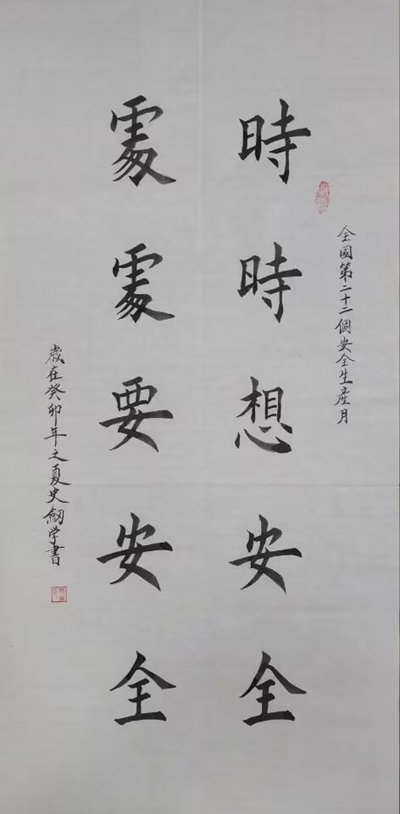 全國第二十二個安全生產月
時時想安全
處處要安全
歲在癸卯年之夏史剱学書